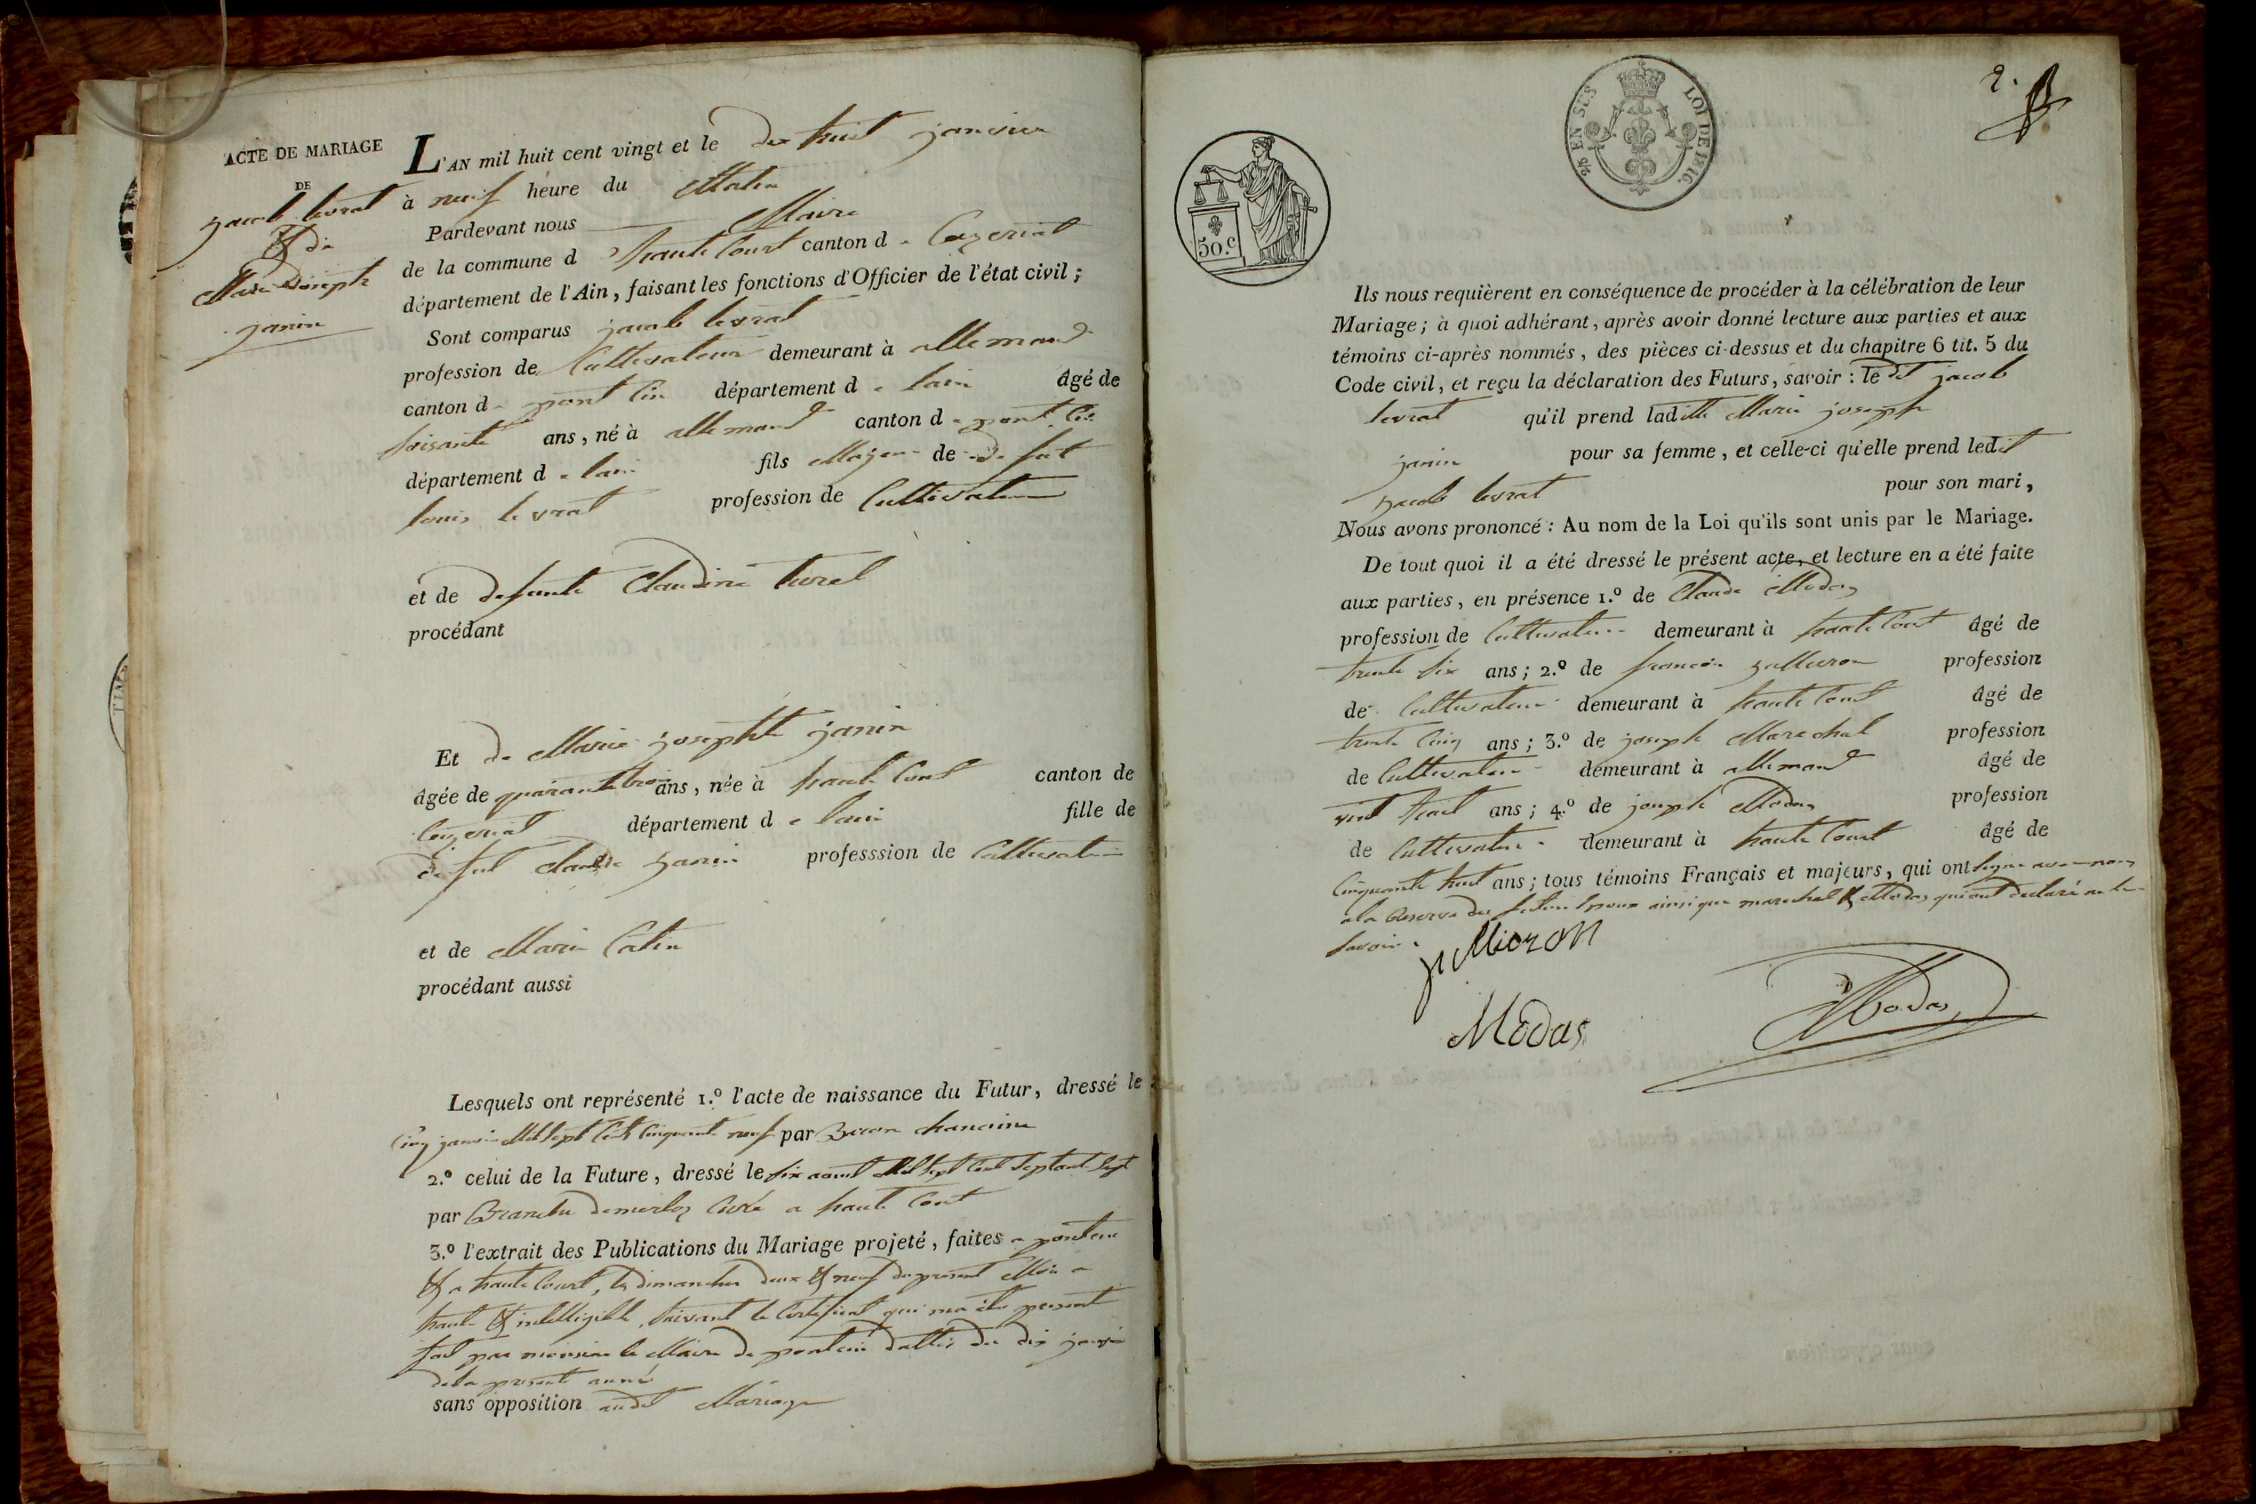 ACTE DE MARIAGE
DE
jacob levrat
& de
Marie joseph
janin
L'AN mil huit cent vingt et le dix huit janvier
à neuf heure du Matin
Pardevant nous Maire
de la commune d hautecourt canton de Ceyzeriat
département de l'Ain, faisant les fonctions d'Officier de l'état civil;
Sont comparus jacob levrat
profession de Cultivateur demeurant à allemand
canton de pont d'ain département de lain âgé de
soisante ans, né à allemand canton de
département de lain fils Majeur de défut
louis levrat profession de Cultivateur
et de defunte Claudine
procédant
Et de Marie josephte janin
âgée de quarante trois ans, née à hautecourt canton de
Ceyzeriat département de lain fille de
defut claude janin professsion de Cultivateur
et de Marie Catin
procédant aussi
Lesquels ont représenté 1.º l'acte de naissance du Futur, dressé le
Cinq janvier Mil sept Cent Cinquante neuf par
2.º celui de la Future, dressé le six aout Mil sept Cent septante sept
par Curé a hautecourt
3.º l'extrait des Publications du Mariage projeté, faites a
& a hautecourt, les dimanches deux & neuf du present Mois a
haute & intelligible, suivant le Certificat qui ma été
fait par monsieur le Maire de du dix janvier
de la presente année
sans opposition audit Mariage
2.
2/5 EN SUS LOI DE 1816.
50.C
Ils nous requièrent en conséquence de procéder à la célébration de leur
Mariage; à quoi adhérant, après avoir donné lecture aux parties et aux
témoins ci-après nommés, des pièces ci-dessus et du chapitre 6 tit. 5 du
Code civil, et reçu la déclaration des Futurs, savoir: le dit jacob
levrat qu'il prend laditte Marie joseph
janin pour sa femme, et celle-ci qu'elle prend ledit
jacob levrat pour son mari,
Nous avons prononcé: Au nom de la Loi qu'ils sont unis par le Mariage.
De tout quoi il a été dressé le présent acte, et lecture en a été faite
aux parties, en présence 1.º de Claude Modas
profession de Cultivateur demeurant à hautecourt âgé de
trente six ans; 2.º de francois profession
de Cultivateur demeurant à hautecourt âgé de
trente Cinq ans; 3.º de joseph Marechal profession
de Cultivateur demeurant à allemand âgé de
vint huit ans; 4.º de joseph Modas profession
de Cultivateur demeurant à hautecourt âgé de
Cinquante huit ans; tous témoins Français et majeurs, qui ont signé avec nous
a la Reserve des futurs Epoux ainsi que marechal & Modas qui ont declaré ne le
savoir.
Modas
Modas